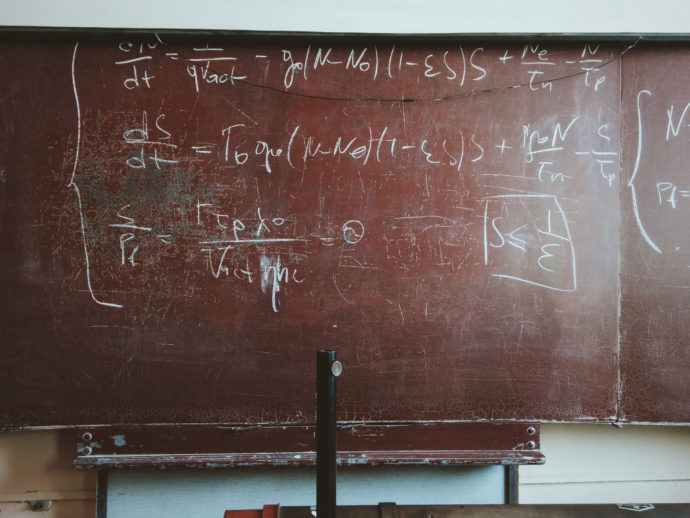 dN/dt = I/qVact - g₀(N-N₀)(1-εS)S + Ne/τn - N/τp
dS/dt = Γ₀g₀(N-N₀)(1-εS)S + N/τn - S/τp
S/Pf = Γτpλ₀/Vactηhc = ②
S ≤ 1/ε
N
Pf =